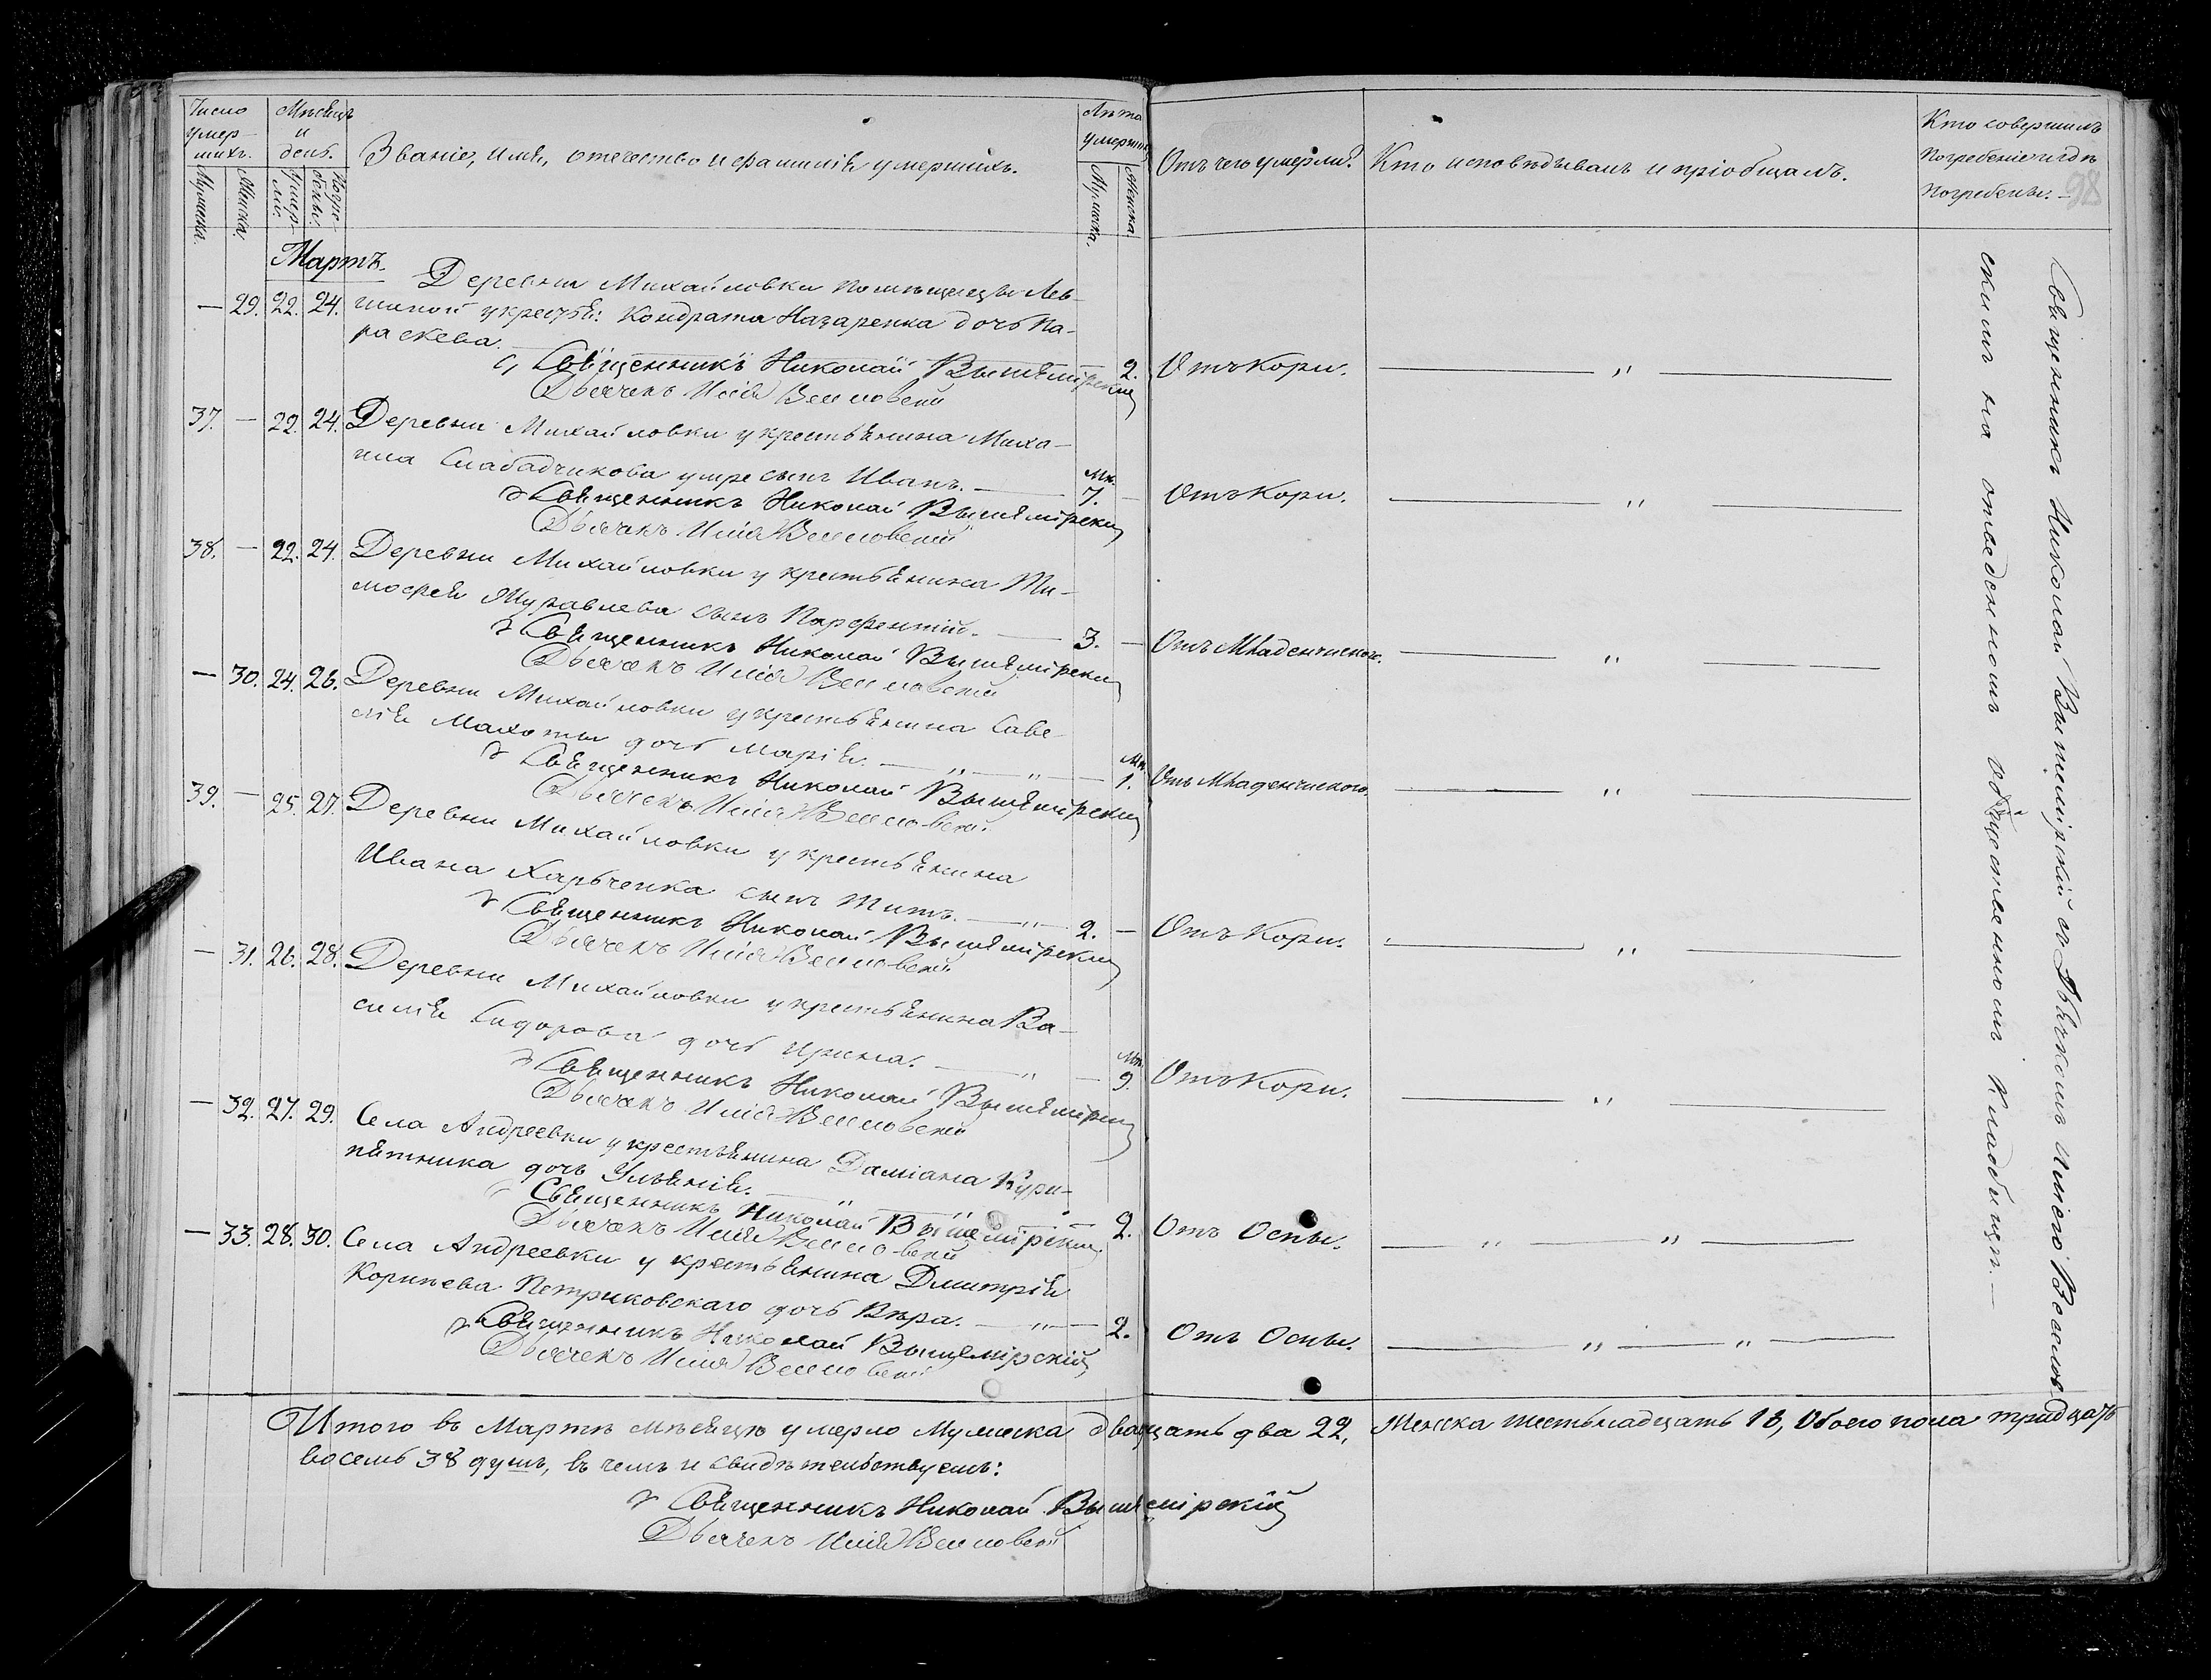 Число умер-шихъ.
Мѣсяцъ и день.
Званіе, имя, отечество и фамилія умершихъ.
Лѣта умершихъ
Отъ чего умерли?
Кто исповѣдывалъ и пріобщалъ.
Кто совершилъ
Погребеніе и гдѣ
Погребены.
98
Мужеска.
Женска.
Умер-ли.
Погре-бены.
Мужеска.
Женска.
Мартъ.
Деревни Михайловки помѣщицы Лев-
— 29. 22. 24. шиной у крестья: Кондрата Назаренка дочь Па-
раскева. — 2. Отъ Кори. — " —
Священникъ Николай Вышемірскій
Дьячекъ Илія Веселовскій
37. — 22. 24. Деревни Михайловки у крестьянина Миха-
ила Слабадчикова умре сынъ Иванъ. — Мц. 7. — Отъ Кори. — " —
Священникъ Николай Вышемірскій
Дьячекъ Илія Веселовскій
38. — 22. 24. Деревни Михайловки у крестьянина Ти-
мофея Журавлева сынъ Парфентій. — 3. — Отъ Младенческого. — " —
Священникъ Николай Вышемірскій
Дьячекъ Илія Веселовскій
— 30. 24. 26. Деревни Михайловки у крестьянина Саве-
лія Махоты дочь Марія. — " — " — Мц. 1. Отъ Младенческого. — " —
Священникъ Николай Вышемірскій
Дьячекъ Илія Веселовскій
39. — 25. 27. Деревни Михайловки у крестьянина
Ивана Харьченка сынъ Титъ. — " — 2. — Отъ Кори. — " —
Священникъ Николай Вышемірскій
Дьячекъ Илія Веселовскій
— 31. 26. 28. Деревни Михайловки у крестьянина Ва-
силія Сидорова дочь Ирина. — " — Мц. 9. Отъ Кори. — " —
Священникъ Николай Вышемірскій
Дьячекъ Илія Веселовскій
— 32. 27. 29. Села Андреевки у крестьянина Даміана Кури-
пятника дочь Ульянія. — " — 2. Отъ Оспы. — " — " —
Священникъ Николай Вышемірскій
Дьячекъ Илія Веселовскій
— 33. 28. 30. Села Андреевки у крестьянина Дмитрія
Корнѣева Петриковскаго дочь Вѣра. — " — 2. Отъ Оспы. — " — " —
Священникъ Николай Вышемірскій
Дьячекъ Илія Веселовскій
Священникъ Николай Вышемірскій съ Дьячкомъ Иліею Веселов-
скимъ на отведенномъ общественномъ кладбищѣ. —
Итого въ Мартѣ мѣсяцѣ умерло Мужеска двацать два 22, Женска шестьнадцать 16, Обоего пола тридцать
восемь 38 душъ, въ чемъ и свидѣтельствуемъ:
Священникъ Николай Вышемірскій
Дьячекъ Илія Веселовскій